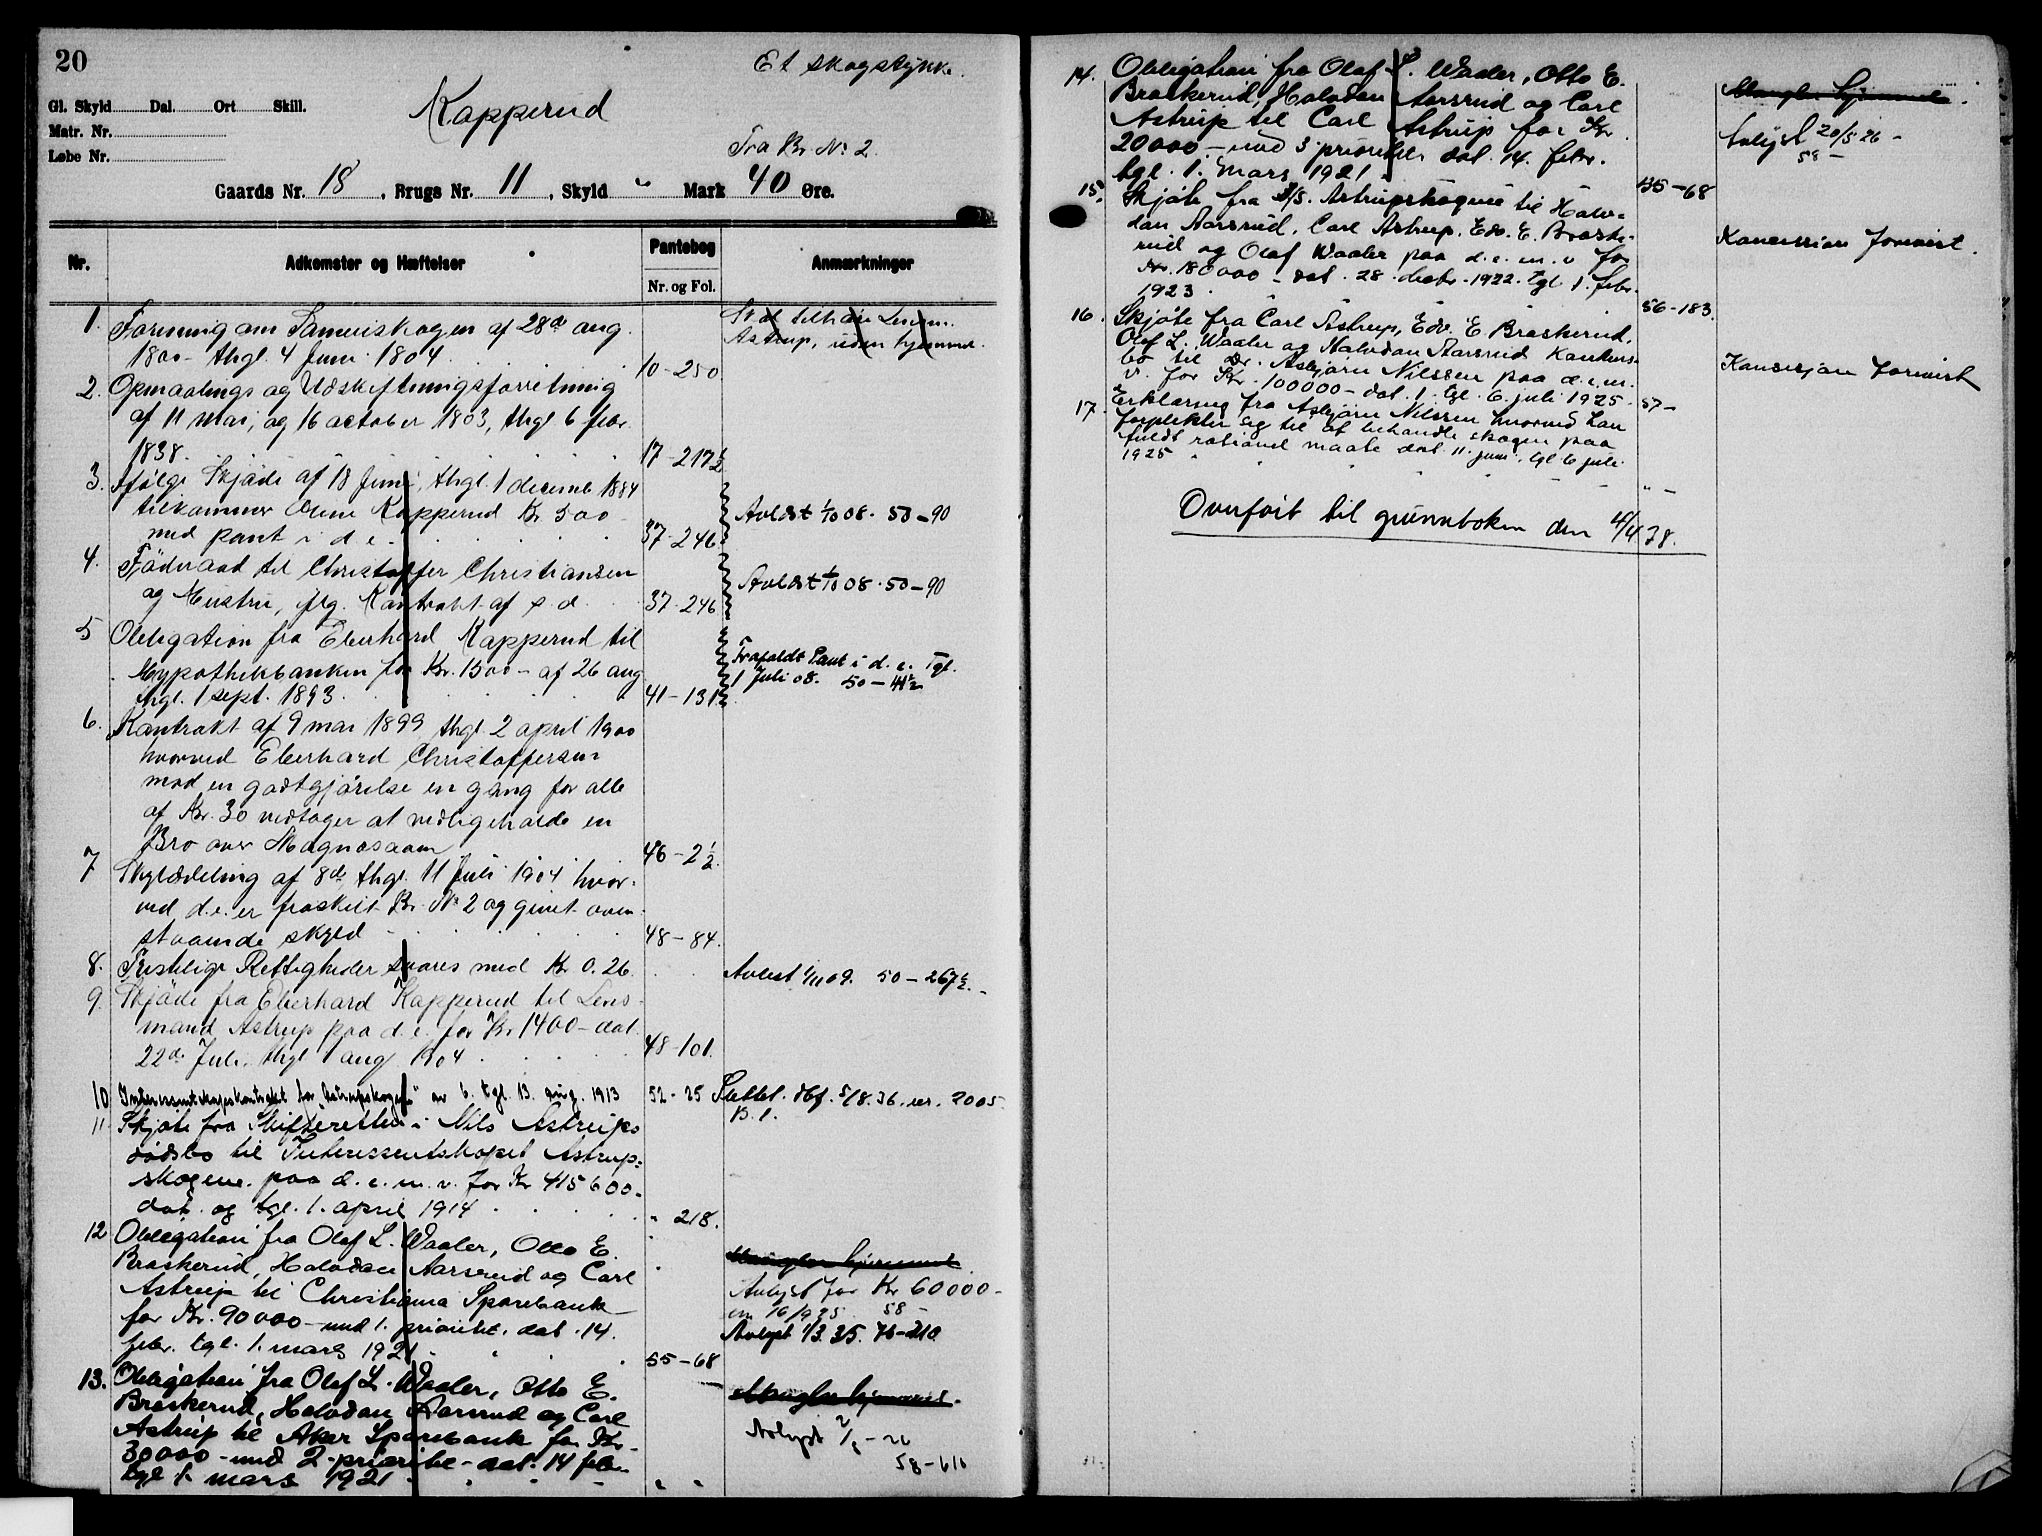 20
Et skogstykke.
Gl. Skyld Dal. Ort Skill.
Kapperud
Matr. Nr.
Løbe Nr.
Fra Br. Nr. 2.
Gaards Nr. 18, Brugs Nr. 11, Skyld " Mark 40 Øre.
Nr. Adkomster og Hæftelser Pantebog Anmærkninger
Nr. og Fol.
1. Forening om Sameiskogen af 28de aug.
1800 - thgl. 4 Juni 1804. 10-250
Skal tilhøre Lensm.
Astrup, uden hjemmel.
2. Opmaalings og Udskiftningsforretning
af 11 Mai, og 16 october 1803, thgl 6 febr.
1838. 17-217½
3. Ifølge Skjøde af 18 Juni, thgl. 1 decemb 1884
tilkommer Kapperud Kr 500
med pant i d. e. 37-246
Avlöst 1/10 08. 50-90
4. Föderaad til Christoffer Christiansen
og Hustru, flg. Kontrakt af s. d. 37-246
Avlöst 1/10 08. 50-90
5 Obligation fra Eberhard Kapperud til
Hypothekbanken for Kr. 1500 - af 26 aug
thgl. 1 sept. 1893. 41-131
Frafaldt Pant i d. e. Tgl.
1 Juli 08. 50-41½
6. Kontrakt af 9 mai 1899 thgl 2 april 1900
hvorved Eberhard Christoffersen
mod en godtgjörelse en gang for alle
af Kr. 30 vedtager at vedligeholde en
Bro over Magnosaaen 46-2½.
7 Skylddeling af 8de, thgl. 11 Juli 1904 hvor-
ved d. e. er fraskilt Br. No 2 og givet oven-
staaende skyld 48-84.
8. Geistlige Rettigheder svares med Kr 0.26.
Avlöst 1/11 09. 50-267½.
9. Skjöde fra Eberhard Kapperud til Lens-
mand Astrup paa d. e. for Kr 1400 - dat.
22de Juli, thgl 1 aug 1904 48-101.
10 Interessentskapskontrakt for "Astrupskogen" av 6. tgl. 13. aug. 1913 52-25
Slettet. dbf. 5/8.36. nr. 2005.
B. 1.
11 Skjøte fra Skifteretten i Nils Astrups
dødsbo til Interessentskapet Astrup-
skogene. paa d. e. m. v. for Kr 415600-
dat. og tgl. 1. april 1914 " 218.
12 Obligation fra Olof L. Waaler, Otto E.
Braskerud, Halvdan Aarsrud og Carl
Astrup til Christiania Sparebank
for Kr. 90000 - med 1. prioritet. dat. 14.
febr. tgl. 1. mars 1921 55-68
Mangler hjemmel.
Avlyst for Kr 60000-
16/9 25 58-
Avlyst 1/3 35. 76-210
13. Obligation fra Olof L. Waaler, Otto E.
Braskerud, Halvdan Aarsrud og Carl
Astrup til Aker Sparebank for Kr-
30000 - med 2-prioritet - dat. 14 febr.
tgl 1. mars 1921 " "
Mangler hjemmel.
Avlyst
58-610
14. Obligation fra Olof L. Waaler, Otto E.
Braskerud, Halvdan Aarsrud og Carl
Astrup til Carl Astrup for Kr
20000.- med 3 prioritet. dat. 14. febr.
tgl. 1. mars 1921. 55-68
Mangler hjemmel.
Avlyst 20/5 26 -
58 -
15. Skjøte fra I/S. Astrupskogene til Halv-
dan Aarsrud, Carl Astrup, Edv. E. Braske-
rud og Olof Waaler paa d. e. m. v for
Kr. 180000 - dat. 28. decbr. 1922. tgl 1. febr.
1923. 56-183.
Koncession forevist.
16. Skjøte fra Carl Astrup, Edv. E Braskerud,
Olof L. Waaler og Halvdan Aarsrud konkurs-
bo til Dr. Asbjørn Nilssen paa d. e. m.
v. for Kr. 100000 - dat. 1. tgl. 6. juli 1925. 57-
Konsesjon forevist
17. Erklæring fra Asbjørn Nilssen hvorved han
forplikter sig til at behandle skogen paa
fuldt rationel maate dat. 11. juni. tgl 6 juli
1925 " -
Overført til grunnboken den 4/4 38.